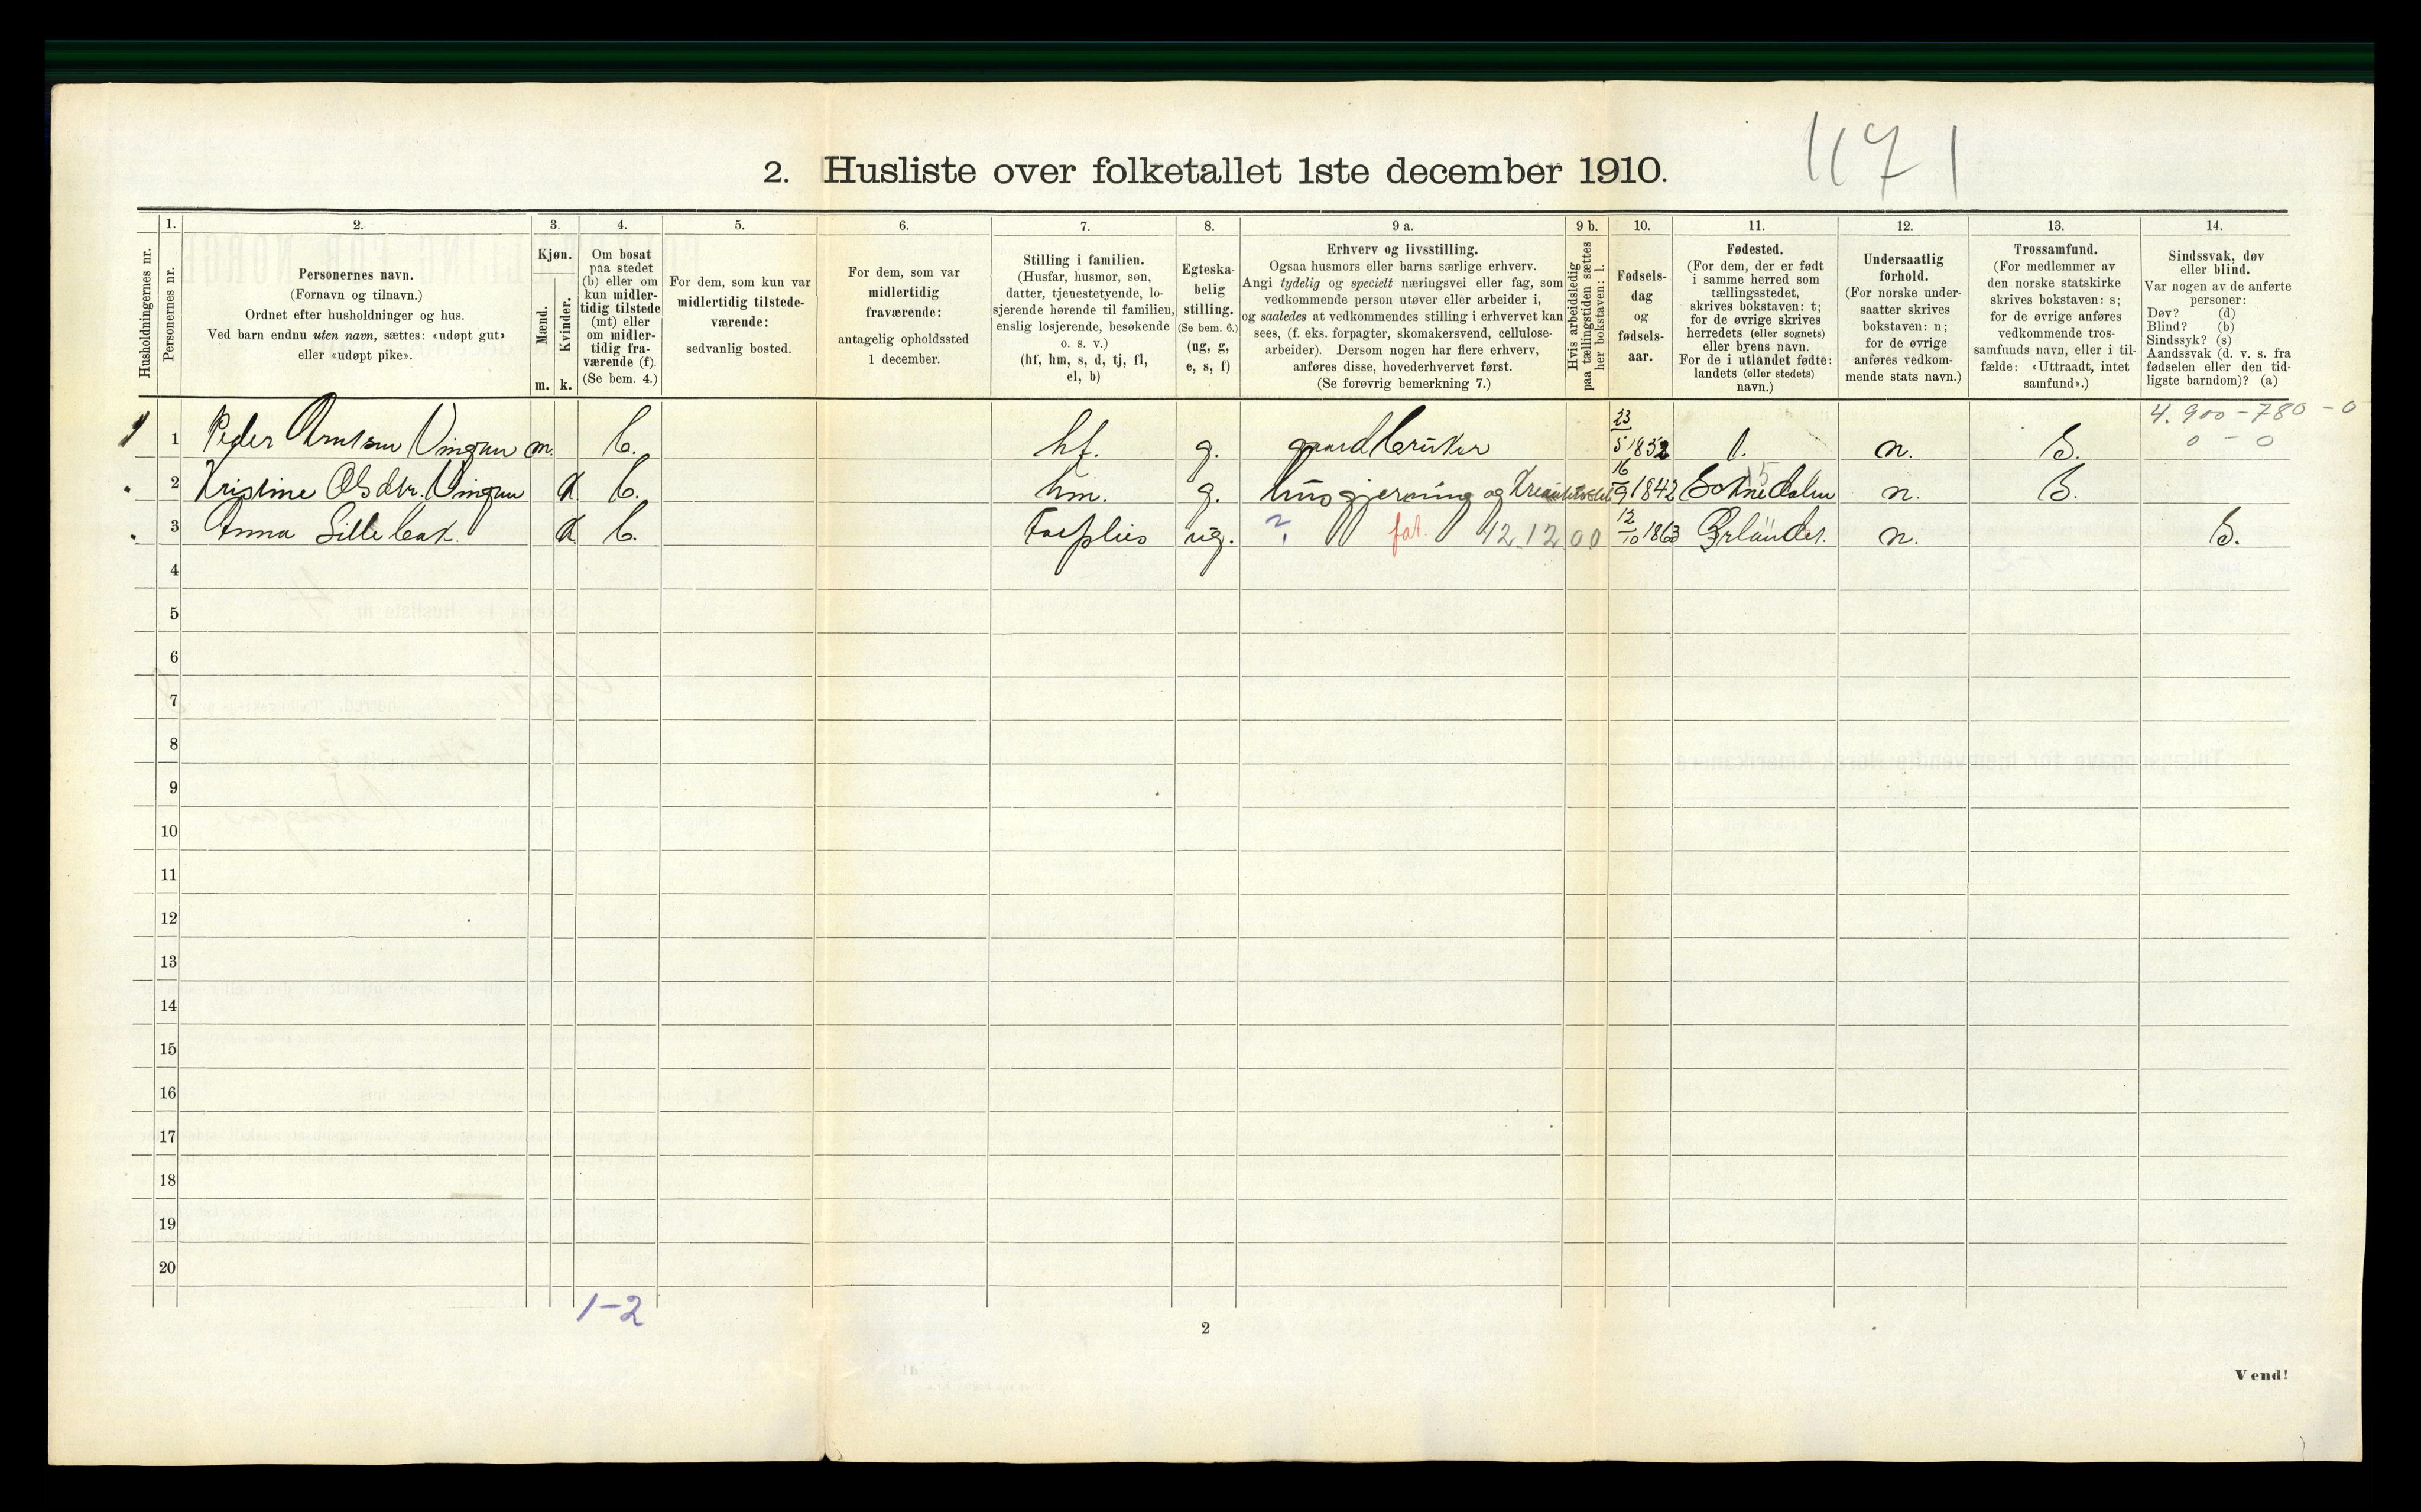 1171
2. Husliste over folketallet 1ste december 1910.
1. 2. 3. 4. 5. 6. 7. 8. 9 a. 9 b. 10. 11. 12. 13. 14.
Husholdningernes nr.
Personernes nr.
Personernes navn.
(Fornavn og tilnavn.)
Ordnet efter husholdninger og hus.
Ved barn endnu uten navn, sættes: «udøpt gut»
eller «udøpt pike».
Kjøn.
Mænd.
Kvinder.
m. k.
Om bosat
paa stedet
(b) eller om
kun midler-
tidig tilstede
(mt) eller
om midler-
tidig fra-
værende (f).
(Se bem. 4.)
For dem, som kun var
midlertidig tilstede-
værende:
sedvanlig bosted.
For dem, som var
midlertidig
fraværende:
antagelig opholdssted
1 december.
Stilling i familien.
(Husfar, husmor, søn,
datter, tjenestetyende, lo-
sjerende hørende til familien,
enslig losjerende, besøkende
o. s. v.)
(hf, hm, s, d, tj, fl,
el, b)
Egteska-
belig
stilling.
(Se bem. 6.)
(ug, g,
e, s, f)
Erhverv og livsstilling.
Ogsaa husmors eller barns særlige erhverv.
Angi tydelig og specielt næringsvei eller fag, som
vedkommende person utøver eller arbeider i,
og saaledes at vedkommendes stilling i erhvervet kan
sees, (f. eks. forpagter, skomakersvend, cellulose-
arbeider). Dersom nogen har flere erhverv,
anføres disse, hovederhvervet først.
(Se forøvrig bemerkning 7.)
Hvis arbeidsledig
paa tællingstiden sættes
her bokstaven: l.
Fødsels-
dag
og
fødsels-
aar.
Fødested.
(For dem, der er født
i samme herred som
tællingsstedet,
skrives bokstaven: t;
for de øvrige skrives
herredets (eller sognets)
eller byens navn.
For de i utlandet fødte:
landets (eller stedets)
navn.)
Undersaatlig
forhold.
(For norske under-
saatter skrives
bokstaven: n;
for de øvrige
anføres vedkom-
mende stats navn.)
Trossamfund.
(For medlemmer av
den norske statskirke
skrives bokstaven: s;
for de øvrige anføres
vedkommende tros-
samfunds navn, eller i til-
fælde: «Uttraadt, intet
samfund».)
Sindssvak, døv
eller blind.
Var nogen av de anførte
personer:
Døv? (d)
Blind? (b)
Sindssyk? (s)
Aandssvak (d. v. s. fra
fødselen eller den tid-
ligste barndom)? (a)
4.900-780-0
0-0
1 1 Peder Arntsen Vingan m. b. hf. g. gaardbruker 23/5 1852 t. n. S.
2 Kristine Olsdtr. Vingan k b. hm. g. husgjerning og 16/9 1842 Soknedalen n. S.
3 Anna Sillebak. k b. ug. ? fat. 12.12.00 12/10 1863 n. S.
4
5
6
7
8
9
10
11
12
13
14
15
16
17
18
19
20
1-2
2
Vend!